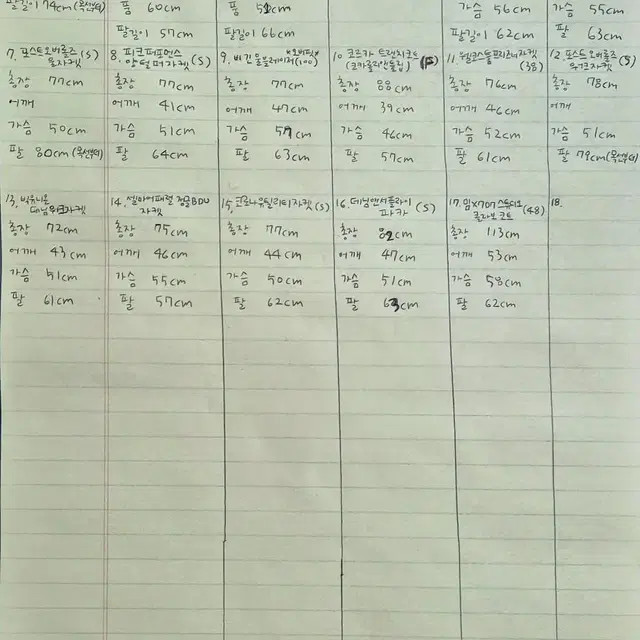 팔길이 74cm (목선부터)
품 60cm
팔길이 57cm
품 52cm
팔길이 66cm
가슴 56cm
팔길이 62cm
가슴 55cm
팔 63cm
7. 포스트오버롤즈 (S)
총장 77cm
어깨
가슴 50cm
팔 80cm (목선부터)
8. 피크퍼포먼스
자켓 (S)
총장 77cm
어깨 41cm
가슴 51cm
팔 64cm
9. 버긴 울블레이저 (100)
*오버핏*
총장 77cm
어깨 47cm
가슴 57cm
팔 63cm
10. 트렌치코트
총장 88cm
어깨 39cm
가슴 46cm
팔 57cm
11. 자켓
(38)
총장 76cm
어깨 46cm
가슴 52cm
팔 61cm
12. 포스트오버롤즈
워크자켓 (S)
총장 78cm
어깨
가슴 51cm
팔 79cm (목선부터)
13. 빅유니온
데님워크자켓
총장 72cm
어깨 43cm
가슴 51cm
팔 61cm
14. BDU
자켓
총장 75cm
어깨 46cm
가슴 55cm
팔 57cm
15. 코로나유틸리티자켓 (S)
총장 77cm
어깨 44cm
가슴 50cm
팔 62cm
16. 데님앤서플라이
파카 (S)
총장 82cm
어깨 47cm
가슴 51cm
팔 63cm
17. 밈X1707스튜디오
콜라보 코트 (48)
총장 113cm
어깨 53cm
가슴 58cm
팔 62cm
18.